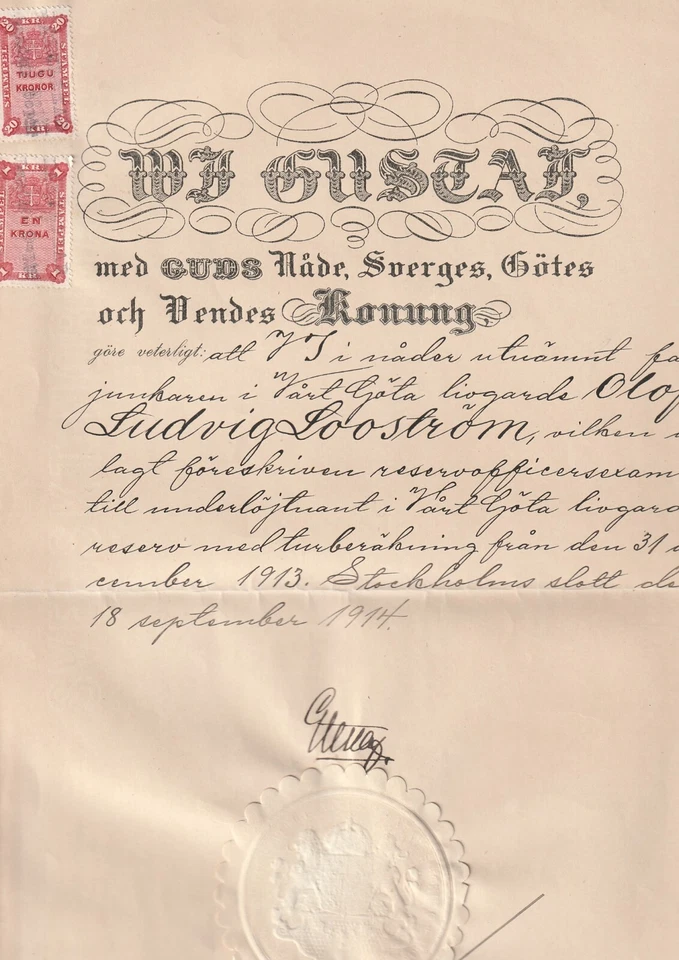 20 KR 20
STAMPEL STAMPEL
TJUGU
KRONOR
20 KR 20
1 KR 1
STAMPEL STAMPEL
EN
KRONA
1 KR 1
WI GUSTAF,
med GUDS Nåde, Sverges, Götes
och Vendes Konung,
göre veterligt: att VI i nåder utnämnt fa
junkaren i Vårt Göta livgarde Olof
Ludvig Looström, vilken
lagt föreskriven reservofficersexam
till underlöjtnant i Vårt Göta livgard
reserv med turberäkning från den 31
cember 1913. Stockholms slott de
18 september 1914.